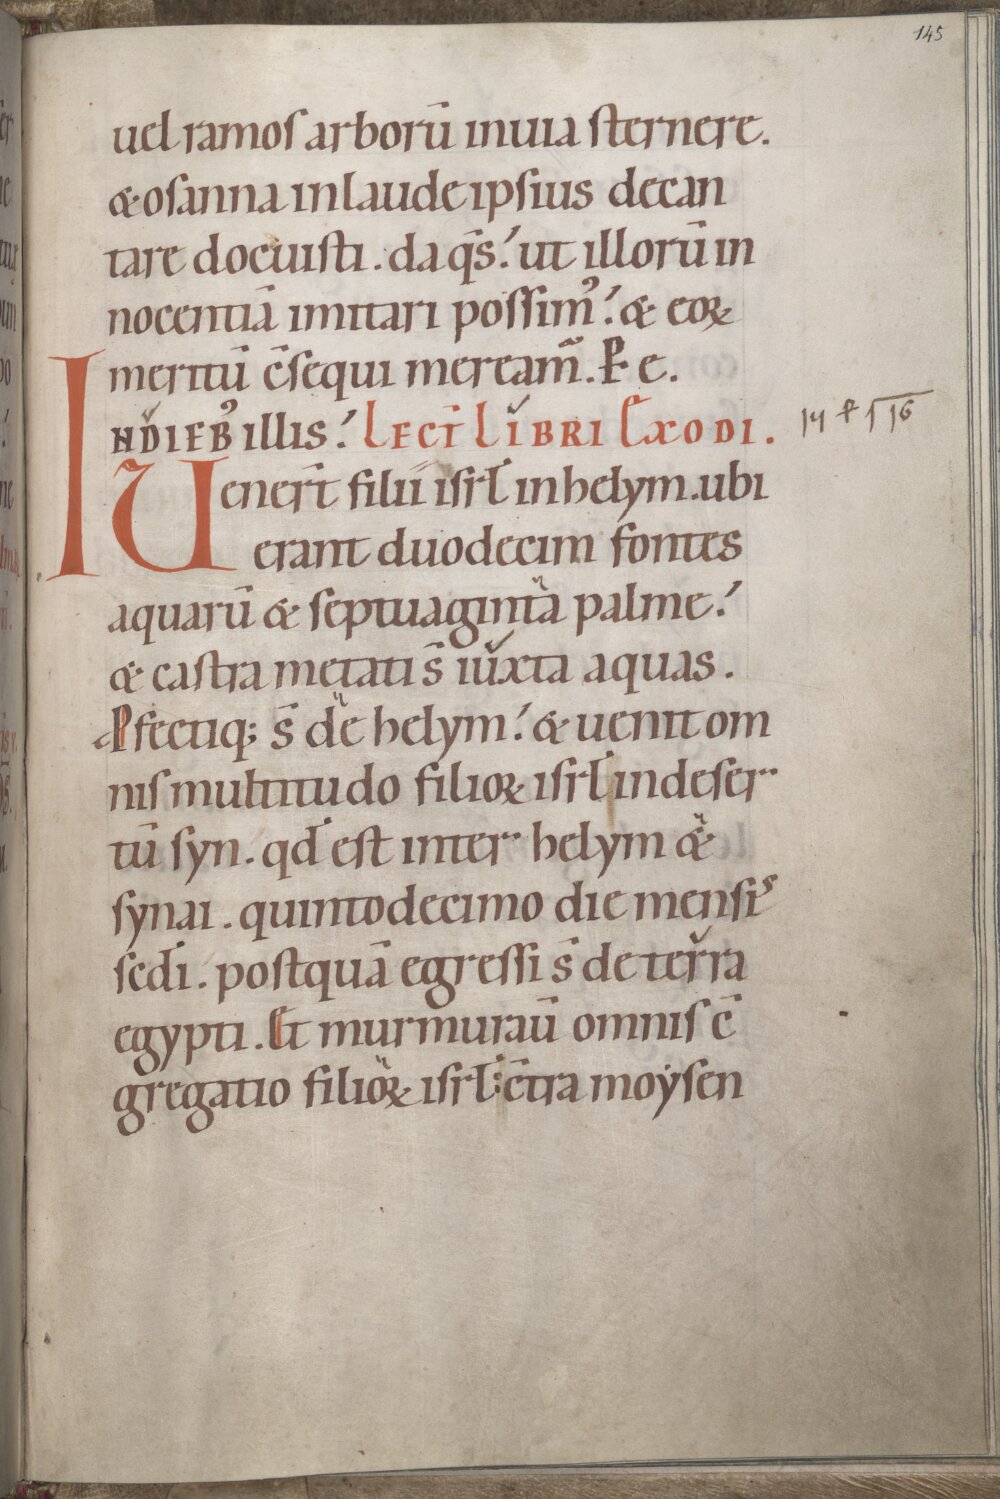 145
uel ramos arborū inuia sternere.
& osanna in laude ipsius decan
tare docuisti . da q̄s ut illorū in
nocentiā imitari possim᷒ & eoꝝ
meritū c̄sequi meream̄. P e.
IN DIEB᷒ illis LECT̄ LIBRI EXODI.
Uener̄t filii isrł in helym . ubi
erant duodecim fontes
aquarū & septuaginta palme
& castra metati s̄ iuxta aquas .
Pfectiq; s̄ de helym & uenit om
nis multitudo filioꝝ isrł in deser
tū syn . qd̄ est inter helym &
synai . quintodecimo die mensis
scd̄i . postquā egressi s̄ de terra
egypti . Et murmuraū omnis c̄
gregatio filioꝝ isrł c̄tra moẏsen